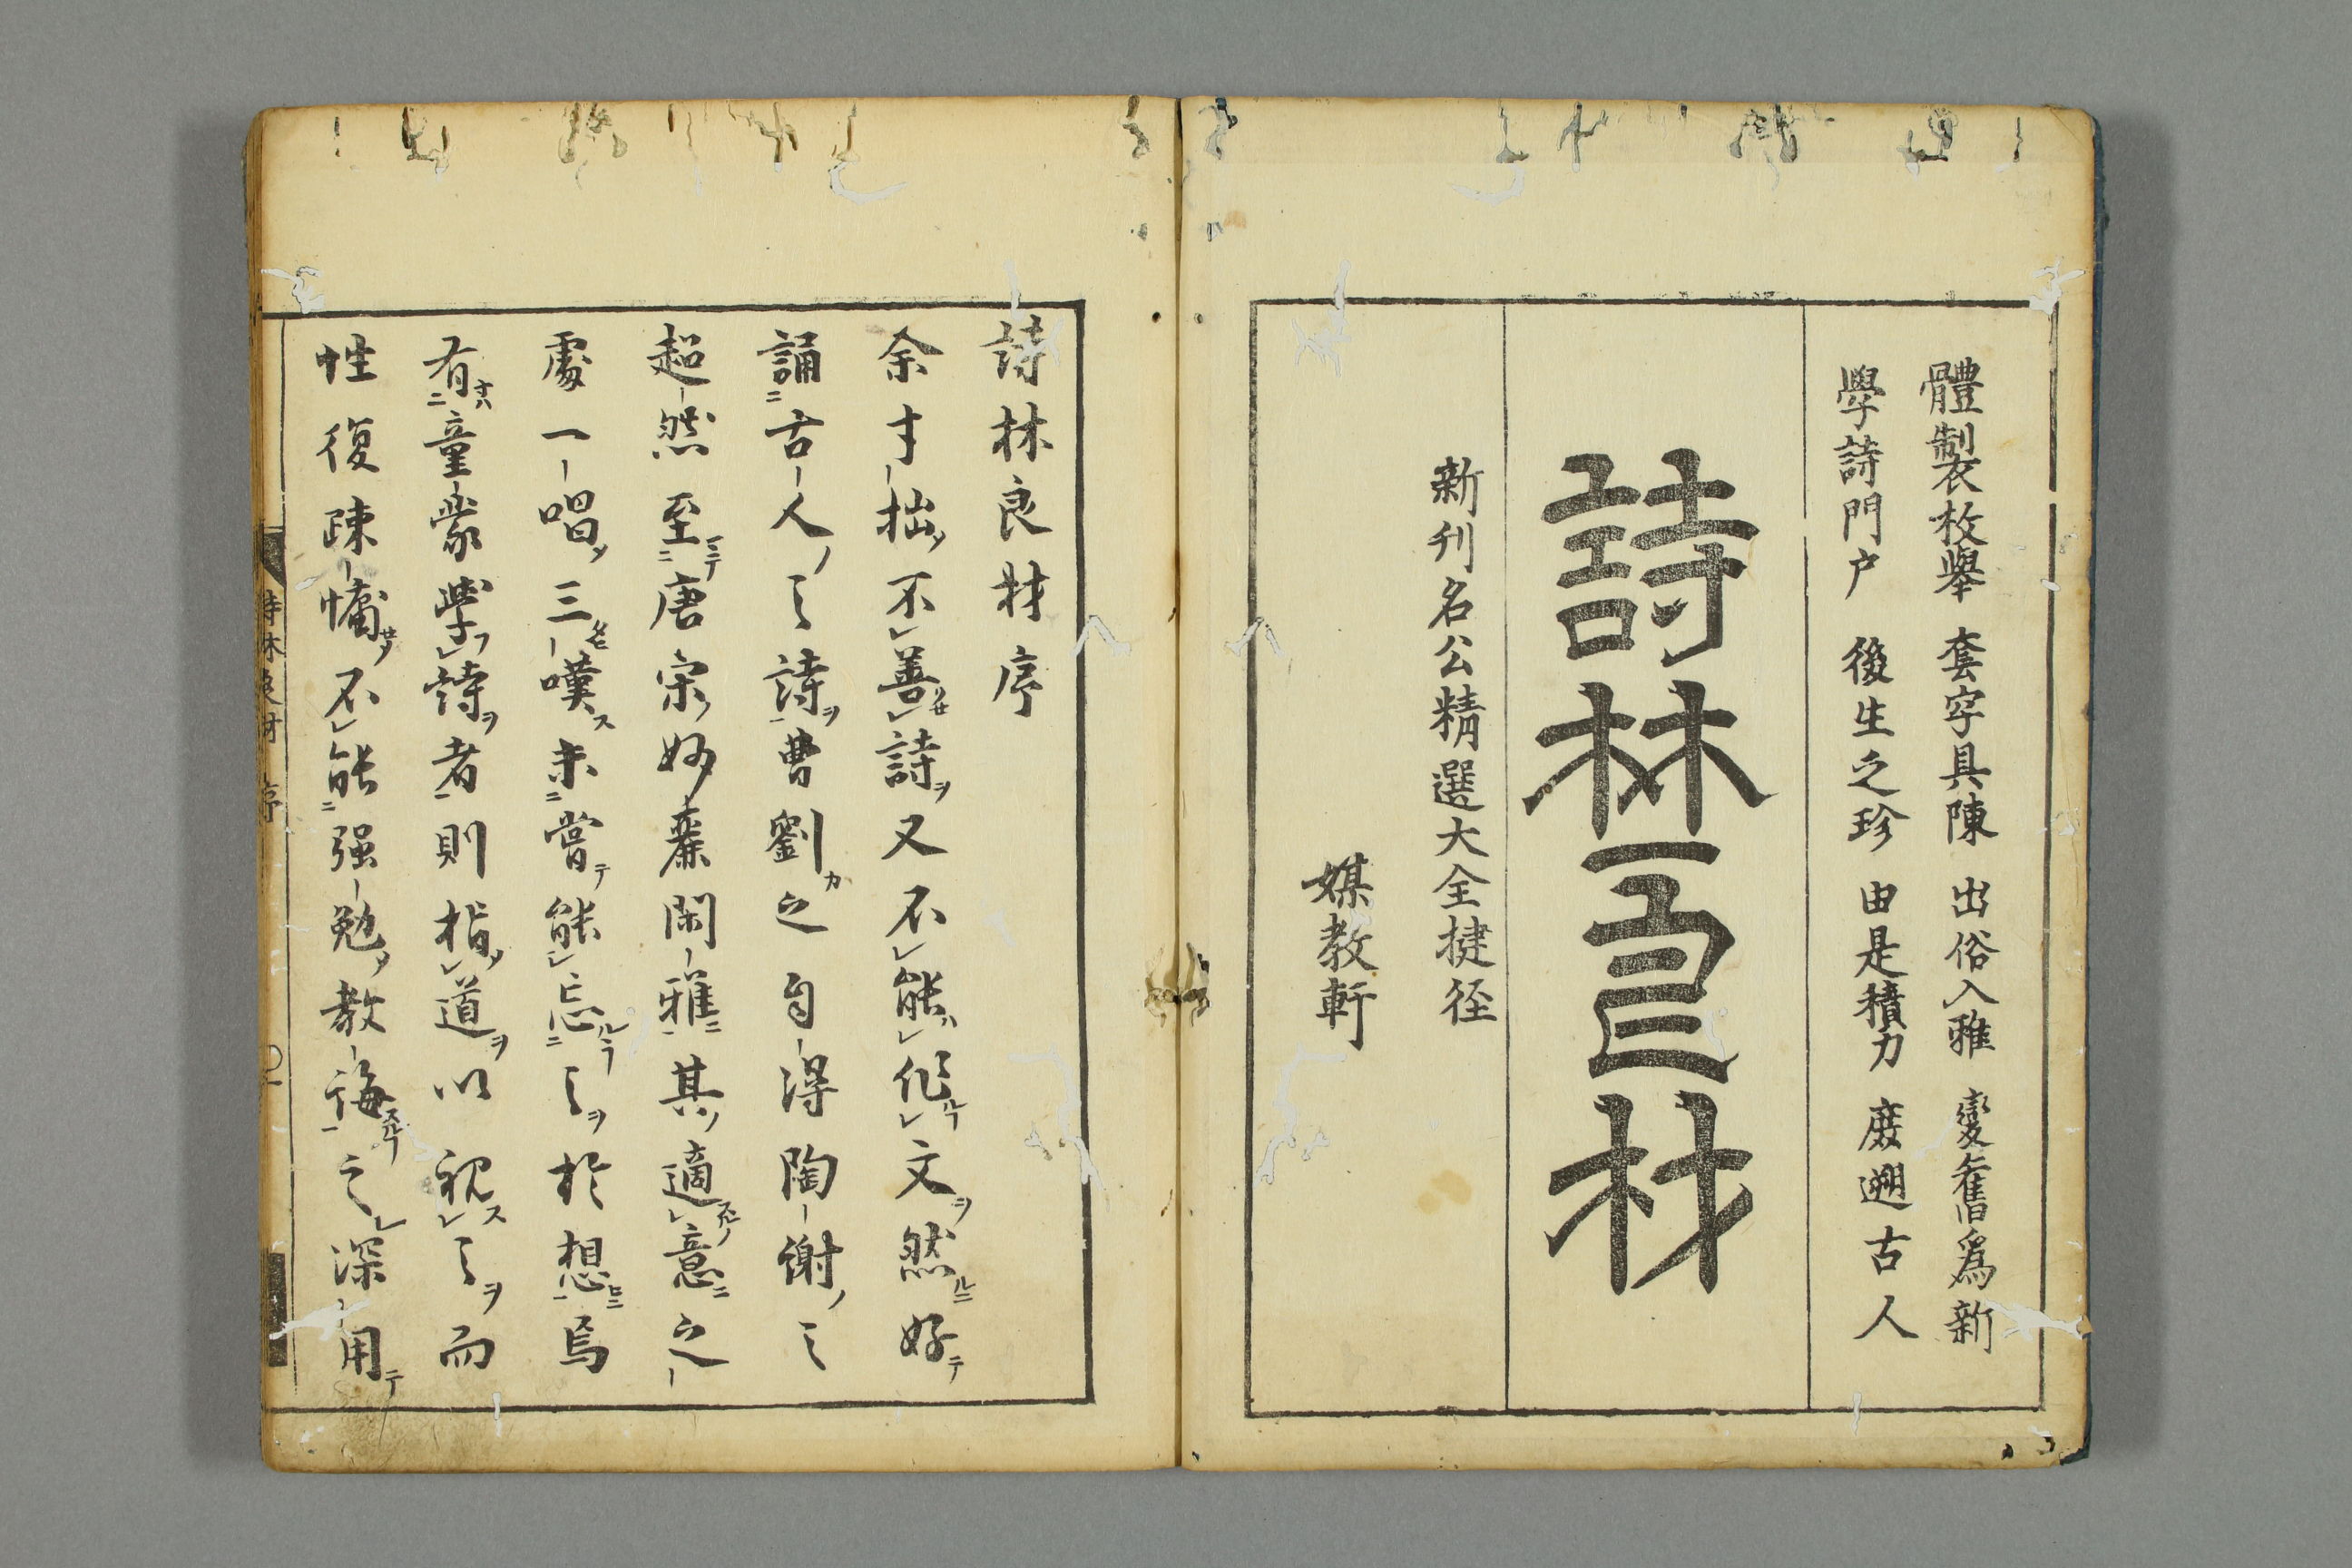 體製衣枚擧 套字具陳 出俗入雅 變舊爲新
學詩門户 後生之珍 由是積力 庶遡古人
詩林良材
新刊名公精選大全捷径
媒教軒
詩林良材序
余才拙不善詩又不能作文然好
誦古人之詩曹劉之自得陶謝之
超然至唐宋妙麗閑雅其適意之
處一唱三嘆未嘗能忘之於想焉
有童蒙學詩者則指道以視之而
性復疎慵不能强勉教誨之深用
詩林良材 序